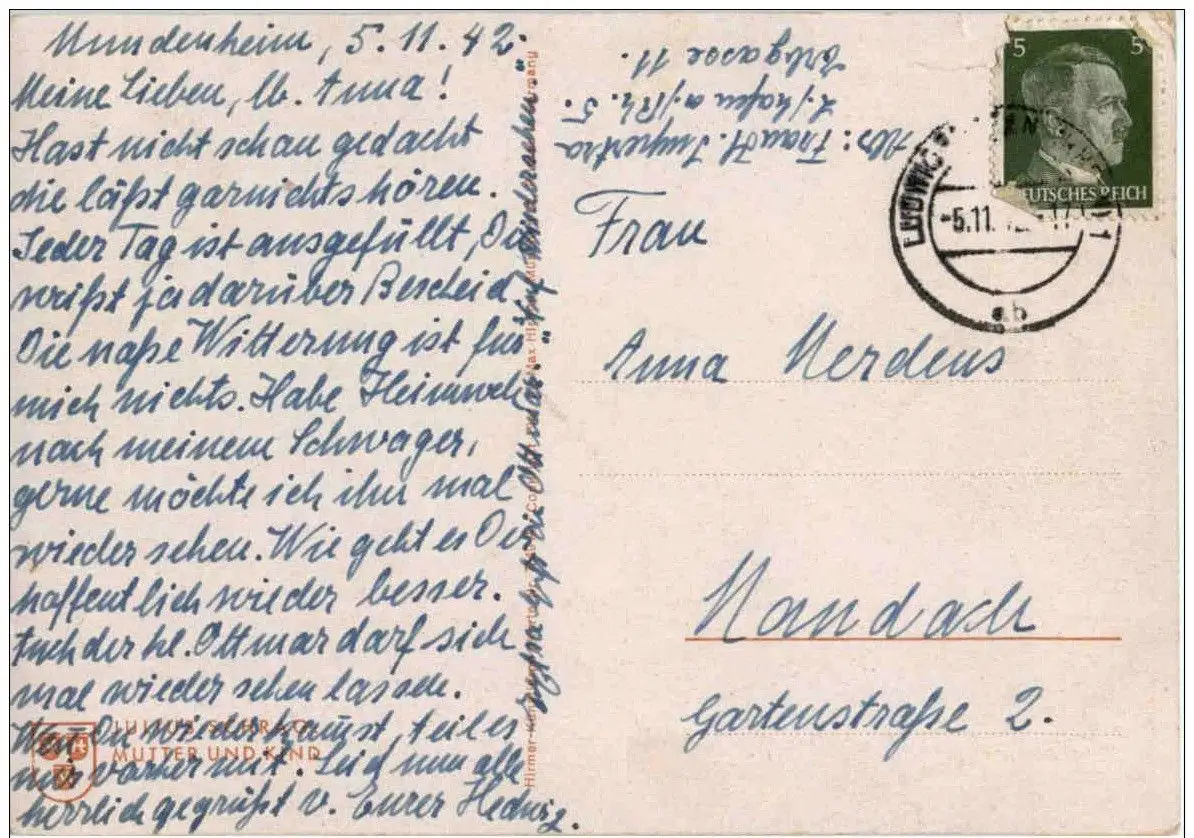 Mundenheim, 5.11.42.
Meine Lieben, lb. Anna!
Hast nicht schon gedacht
die läßt garnichts hören.
Jeder Tag ist ausgefüllt, Du
weißt ja darüber Bescheid.
Die naße Witterung ist für
mich nichts. Habe Heimweh
nach meinem Schwager,
gerne möchte ich ihn mal
wieder sehen. Wie geht es Dir
hoffentlich wieder besser.
Auch der hl. Ottmar darf sich
mal wieder sehen lassen.
Wenn Du wieder kommst, teil es
mir vorher mit. Seid nun alle
herzlich gegrüßt v. Eurer Hedwig.
die Ottmar. Auf Wiedersehen.
MUTTER UND KIND
Hirmer
Abs: Frau H.
L./hafen a./Rh. 5.
11.
5 5
DEUTSCHES REICH
LUDWIG
-5.11.
ab
Frau
Anna Merdens
Mandach
Gartenstraße 2.